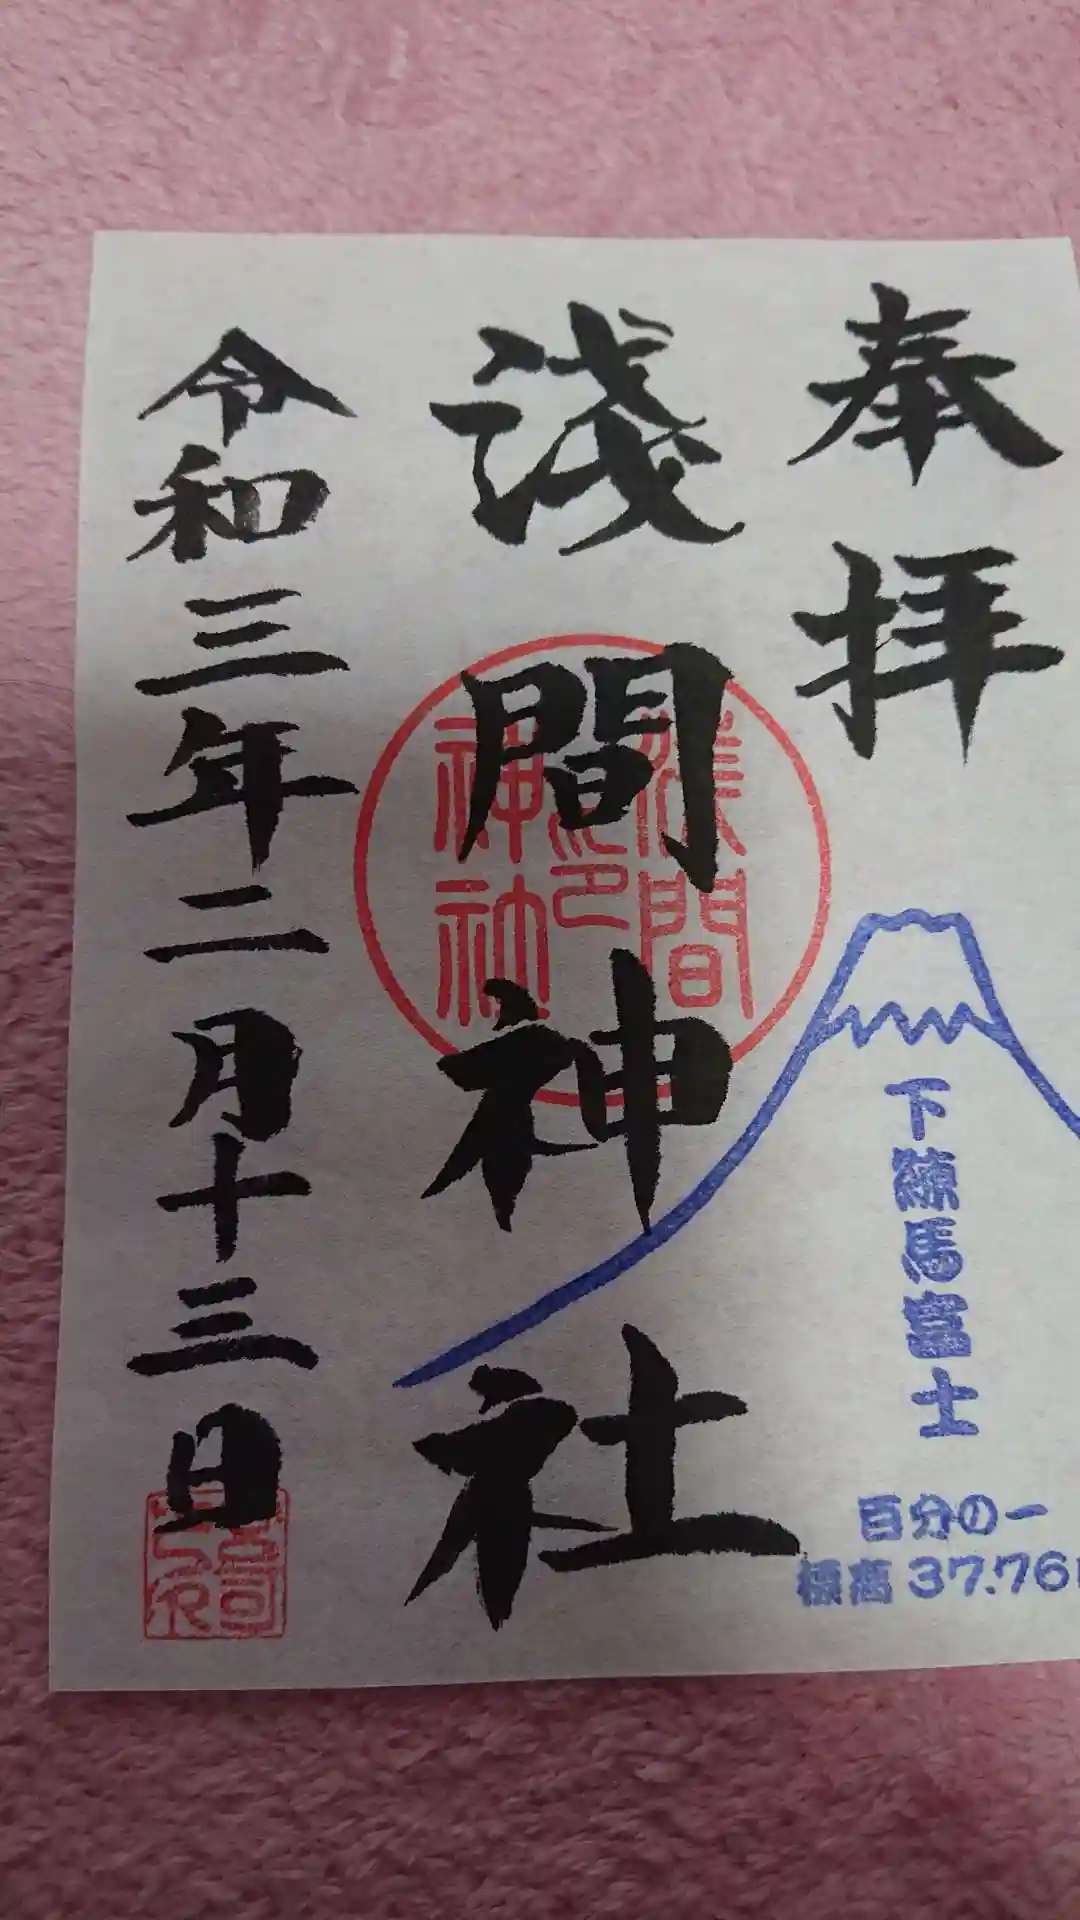 奉拝
下練馬富士
百分の一
標高37.76
淺間神社
淺間
神社
印
令和三年二月十三日